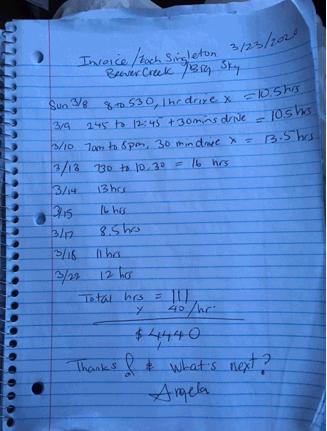 Invoice / Zach Singleton 3/23/2020
Beaver Creek / Big Sky
Sun 3/8 8 to 530, 1 hr drive x = 10.5 hrs
3/9 245 to 12:45 + 30 mins drive = 10.5 hrs
3/10 7am to 8pm, 30 min drive x = 13.5 hrs
3/13 730 to 10.30 = 16 hrs
3/14 13 hrs
3/15 16 hrs
3/17 8.5 hrs
3/18 11 hrs
3/22 12 hrs
Total hrs = 111
x 40/hr
$4,440
Thanks & what's next?
Angela